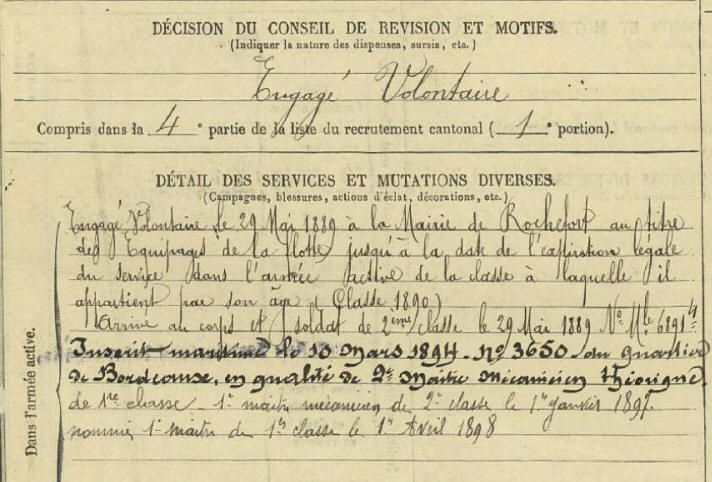 DÉCISION DU CONSEIL DE REVISION ET MOTIFS.
(Indiquer la nature des dispenses, sursis, etc.)
Engagé Volontaire
Compris dans la 4e partie de la liste du recrutement cantonal ( 1e portion).
DÉTAIL DES SERVICES ET MUTATIONS DIVERSES.
(Campagnes, blessures, actions d'éclat, décorations, etc.)
Dans l'armée active.
Engagé Volontaire le 29 Mai 1889 à la Mairie de Rochefort au titre
des Equipages de la flotte jusqu'à la date de l'expiration légale
du service dans l'armée active de la classe à laquelle il
appartient par son âge (Classe 1890)
Arrivé au corps et soldat de 2ème classe le 29 Mai 1889 No Mle 6891
Inscrit maritime le 10 Mars 1894 No 3650 du quartier
de Bordeaux, en qualité de 2e Maître Mécanicien théorique
de 1re classe 1er maître mécanicien de 2e classe le 1er Janvier 1897.
nommé 1er maître de 1re classe le 1er Avril 1898